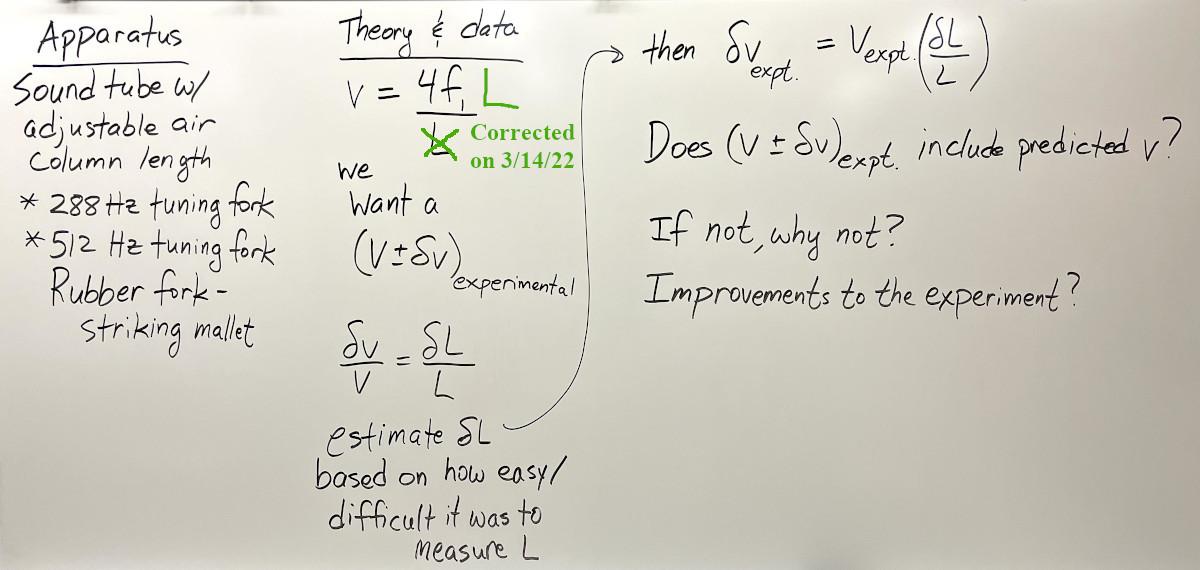 Apparatus
Sound tube w/
adjustable air
column length
* 288 Hz tuning fork
* 512 Hz tuning fork
Rubber fork-
striking mallet
Theory & data
V = 4f₁ L
L
Corrected
on 3/14/22
we
want a
(V ± δv) experimental
δv/V = δL/L
estimate δL
based on how easy/
difficult it was to
measure L
then δv expt. = V expt. (δL/L)
Does (V ± δv) expt. include predicted v?
If not, why not?
Improvements to the experiment?